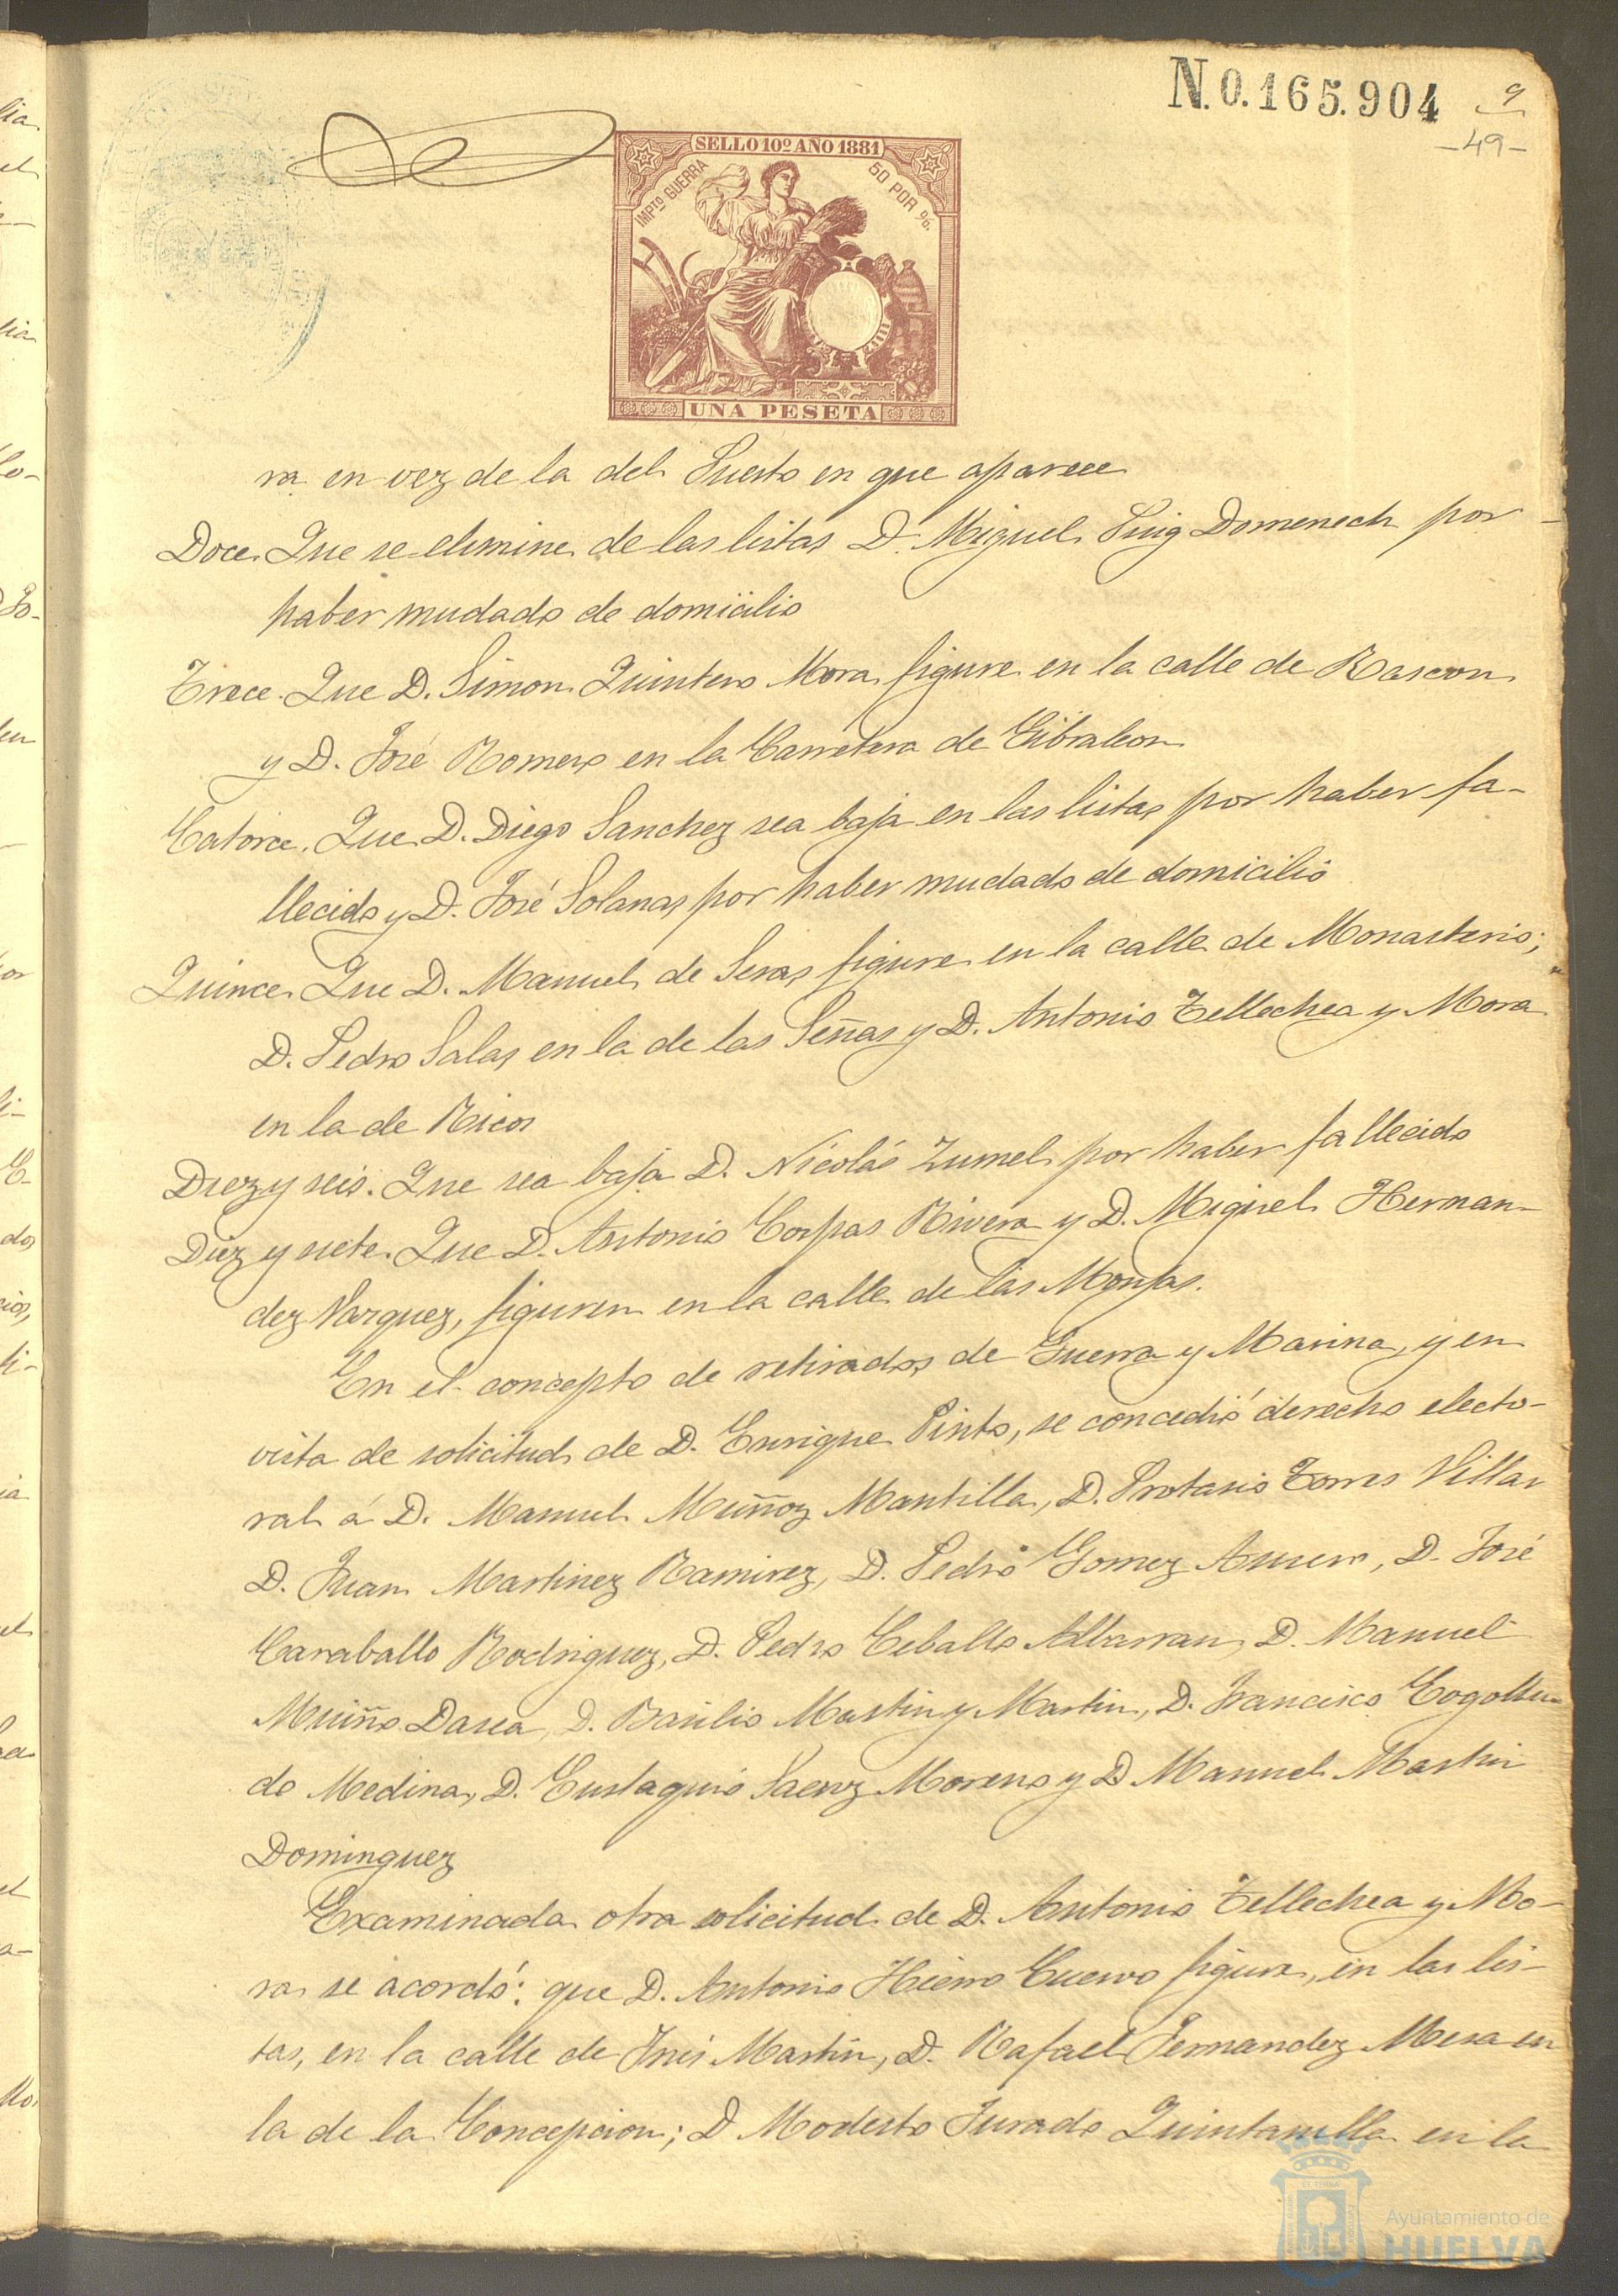 N.0.165.904
9
-49-
SELLO 10º AÑO 1881
IMPTO GUERRA
50 POR %
UNA PESETA
ra en vez de la del Puerto en que aparece
Doce. Que se elimine de las listas D. Miguel Puig Domenech por
haber mudado de domicilio
Trece. Que D. Simon Quintero Mora figure en la calle de Rascon
y D. José Romero en la Carretera de Gibraleon
Catorce. Que D. Diego Sanchez sea baja en las listas por haber fa-
llecido y D. José Solanas por haber mudado de domicilio
Quince. Que D. Manuel de Seras figure en la calle de Monasterio;
D. Pedro Salas en la de las Señas y D. Antonio Tellechea y Mora
en la de Ricos
Diez y seis. Que sea baja D. Nicolás Zumel por haber fallecido
Diez y siete. Que D. Antonio Corpas Rivera y D. Miguel Hernan-
dez Vazquez, figuren en la calle de las Monjas.
En el concepto de retirados de Guerra y Marina, y en
vista de solicitud de D. Enrique Pinto, se concedió derecho electo-
ral á D. Manuel Muñoz Mantilla, D. Protasio Torres Villar
D. Juan Martinez Ramirez, D. Pedro Gomez, D. José
Caraballo Rodriguez, D. Pedro Ceballo Albarran, D. Manuel
Muiño, D. Basilio Martin y Martin, D. Francisco Cogollu-
do Medina, D. Eustaquio Saenz Moreno y D Manuel Martin
Dominguez
Examinada otra solicitud de D. Antonio Tellechea y Mo-
ra, se acordó: que D. Antonio Hierro Cuervo figure, en las lis-
tas, en la calle de Inés Martin, D. Rafael Fernandez Mesa en
la de la Concepcion; D Modesto Jurado Quintanilla en la
Ayuntamiento de
HUELVA